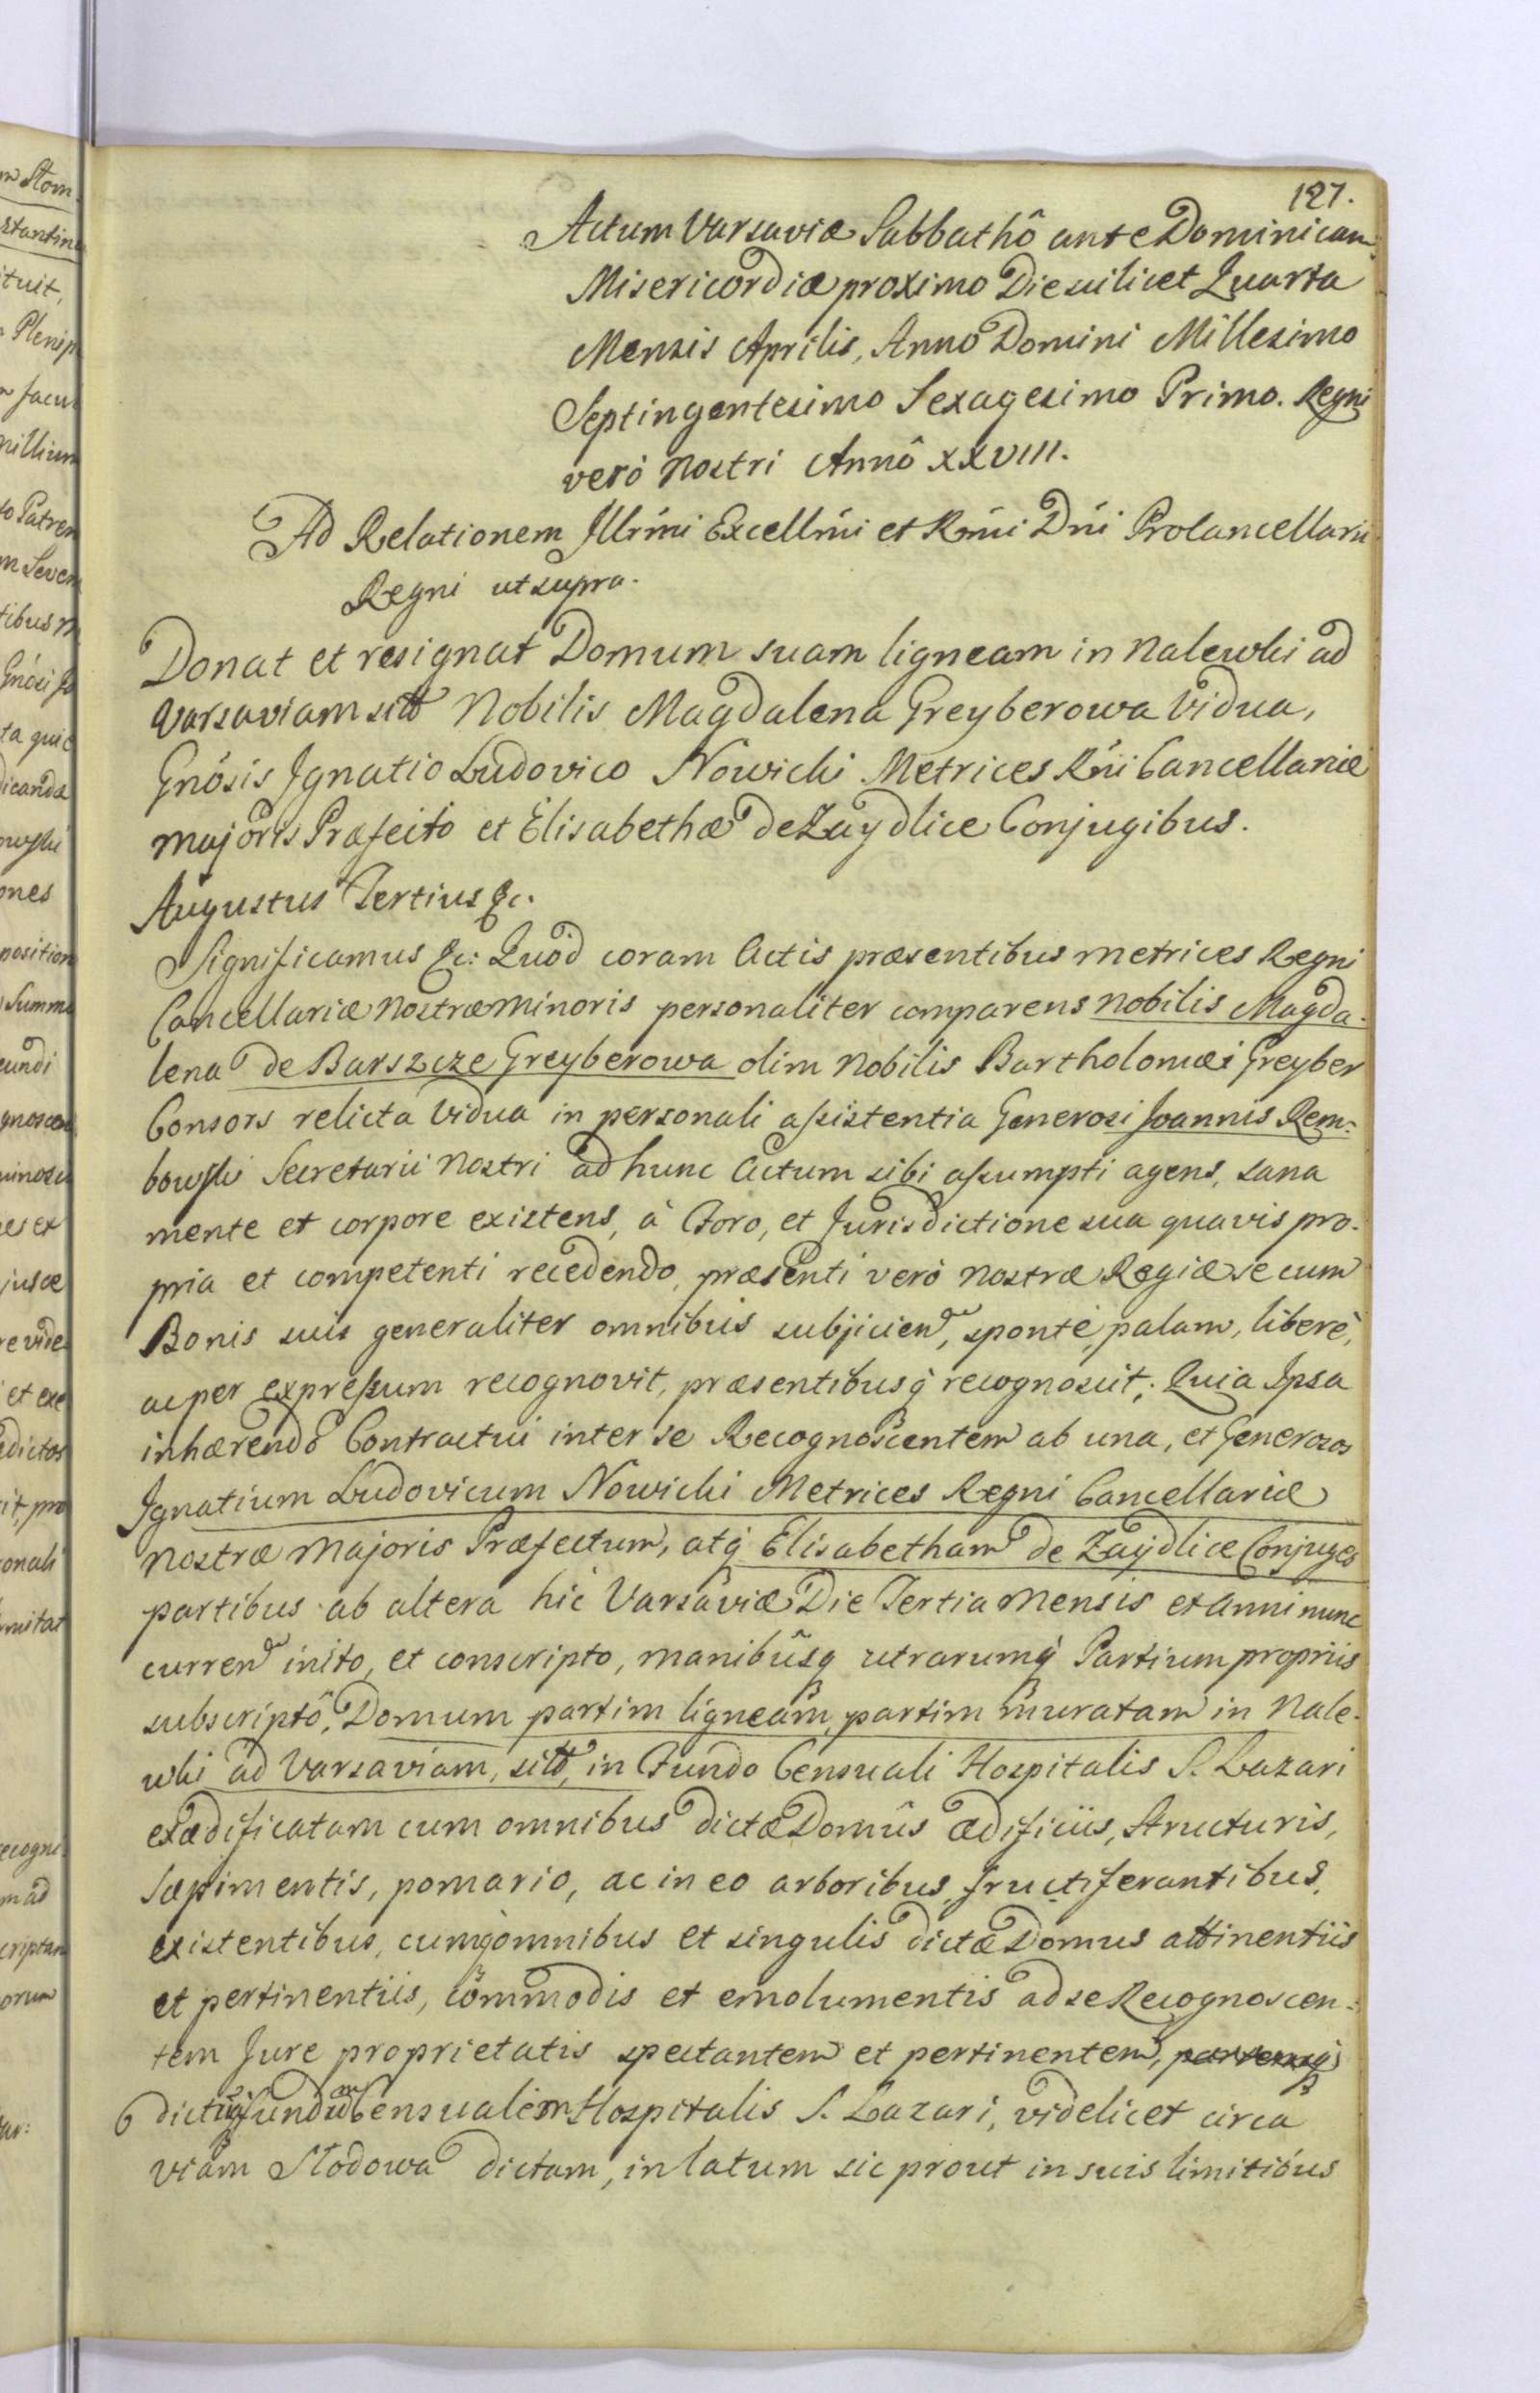 127.
Actum Varsaviæ Sabbathô ante Dominicam
Misericordiæ proximo Die scilicet Quarta
Mensis Aprilis, Anno Domini Millesimo
Septingentesimo Sexagesimo Primo. Regni
verò Nostri Annô XXVIII.
Ad Relationem Illrmi Excellmi et Rmi Dni Procancellarii
Regni ut supra.
Donat et resignat Domum suam ligneam in Nalewki ad
Varsaviam sitã Nobilis Magdalena Greyberowa Vidua,
Gnosis Ignatio Ludovico Nowicki Metrices Rni Cancellariæ
Majoris Præfecto et Elisabethæ de Zaydlice Conjugibus.
Augustus Tertius &c.
Significamus &c: Quod coram Actis præsentibus Metrices Regni
Cancellariæ Nostræ Minoris personaliter comparens Nobilis Magda-
lena de Barszcze Greyberowa olim Nobilis Bartholomæi Greyber
Consors relicta Vidua in personali assistentia Generosi Joannis Rem-
bowski Secretarii Nostri ad hunc Actum sibi assumpti agens, sana
mente et corpore existens, à Foro, et Jurisdictione sua quavis pro-
pria et competenti recedendo, præsenti verò Nostræ Regiæ se cum
Bonis suis generaliter omnibus subjicien, sponte, palam, liberè,
ac per expressum recognovit, præsentibusq recognoscit; Quia Ipsa
inhærendo Contractui inter se Recognoscentem ab una, et Generosos
Ignatium Ludovicum Nowicki Metrices Regni Cancellariæ
Nostræ Majoris Præfectum, atq Elisabetham de Zaydlice Conjuges
partibus ab altera hic Varsaviæ Die Tertia Mensis et Anni nunc
curren inito, et conscripto, manibusq utrarumq Partium propriis
subscriptô, Domum partim ligneam, partim muratam in Nale-
wki ad Varsaviam, sitã, in Fundo Censuali Hospitalis S. Lazari
exædificatam cum omnibus dictæ Domûs ædificiis, Structuris,
Sæpimentis, pomario, ac in eo arboribus fructiferantibus,
existentibus, cumq omnibus et singulis dictæ Domus attinentiis
et pertinentiis, commodis et emolumentis ad se Recognoscen-
tem Jure proprietatis spectantem et pertinentem,
Censualem Hospitalis S. Lazari, videlicet circa
viam Stodowa dictam, in latum sic prout in suis limitibus